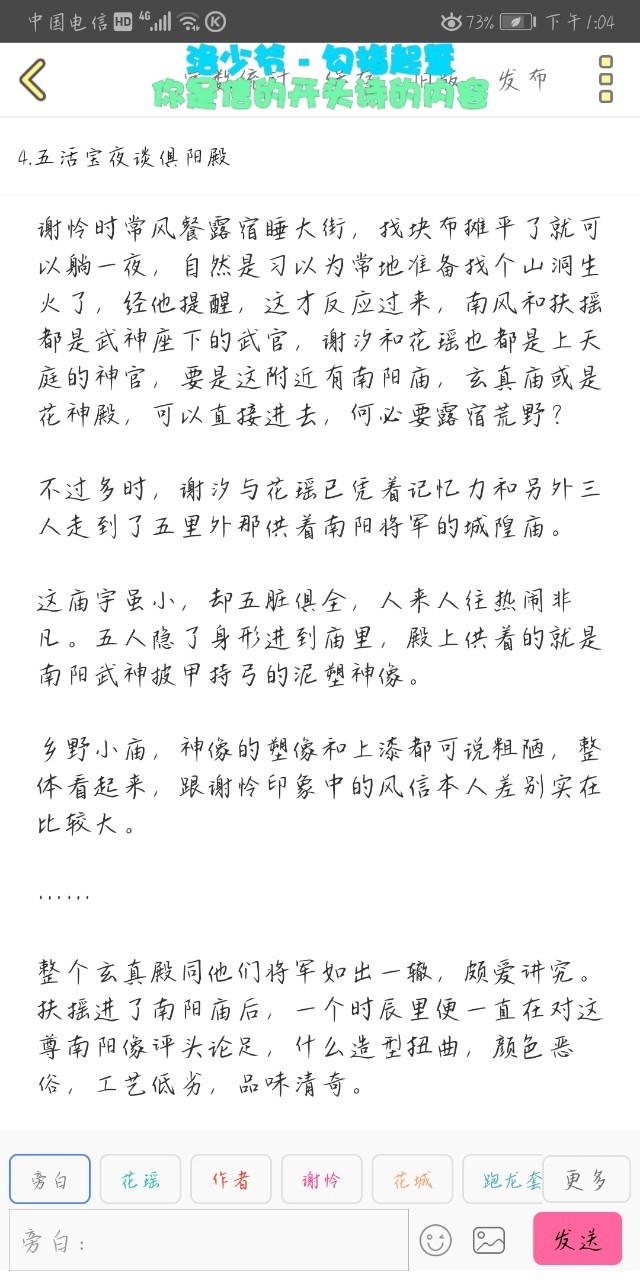 中国电信 HD 4G 73% 下午1:04
洛少爷-勾指起誓
发布
你是信的开头诗的内容
4.五活宝夜谈俱阳殿
谢怜时常风餐露宿睡大街，找块布摊平了就可
以躺一夜，自然是习以为常地准备找个山洞生
火了，经他提醒，这才反应过来，南风和扶摇
都是武神座下的武官，谢汐和花瑶也都是上天
庭的神官，要是这附近有南阳庙，玄真庙或是
花神殿，可以直接进去，何必要露宿荒野？
不过多时，谢汐与花瑶已凭着记忆力和另外三
人走到了五里外那供着南阳将军的城隍庙。
这庙宇虽小，却五脏俱全，人来人往热闹非
凡。五人隐了身形进到庙里，殿上供着的就是
南阳武神披甲持弓的泥塑神像。
乡野小庙，神像的塑像和上漆都可说粗陋，整
体看起来，跟谢怜印象中的风信本人差别实在
比较大。
……
整个玄真殿同他们将军如出一辙，颇爱讲究。
扶摇进了南阳庙后，一个时辰里便一直在对这
尊南阳像评头论足，什么造型扭曲，颜色恶
俗，工艺低劣，品味清奇。
旁白 花瑶 作者 谢怜 花城 跑龙套 更多
旁白： 发送